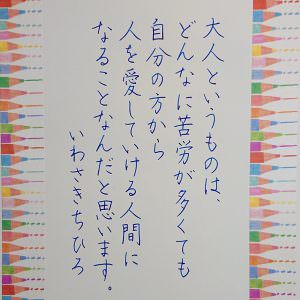 大人というものは、
どんなに苦労が多くても
自分の方から
人を愛していける人間に
なることなんだと思います。
いわさきちひろ